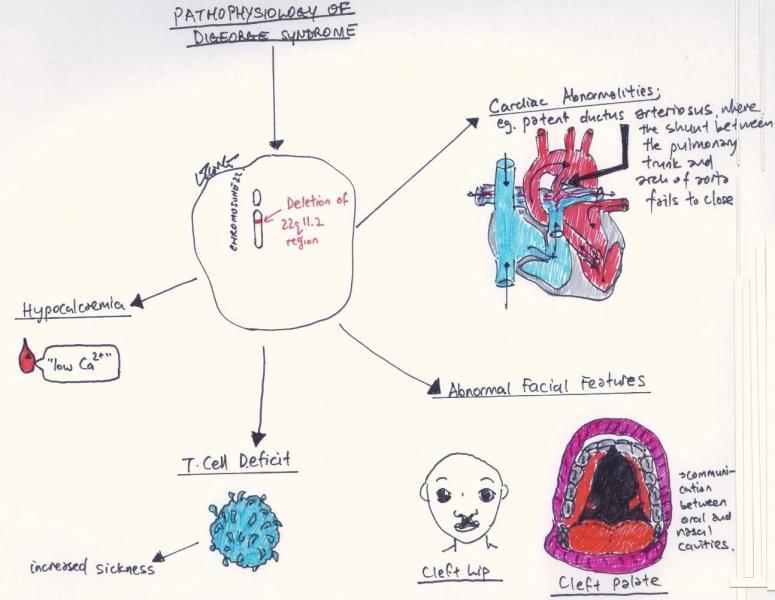 PATHOPHYSIOLOGY OF
DIGEORGE SYNDROME
Cardiac Abnormalities;
eg. patent ductus arteriosus, where
the shunt between
the pulmonary
trunk and
arch of aorta
fails to close
CHROMOSOME 22
Deletion of
22q11.2
region
Hypocalcaemia
"low Ca²⁺"
T-Cell Deficit
increased sickness
Abnormal Facial Features
Cleft Lip
Cleft Palate
→communi-
cation
between
oral and
nasal
cavities.